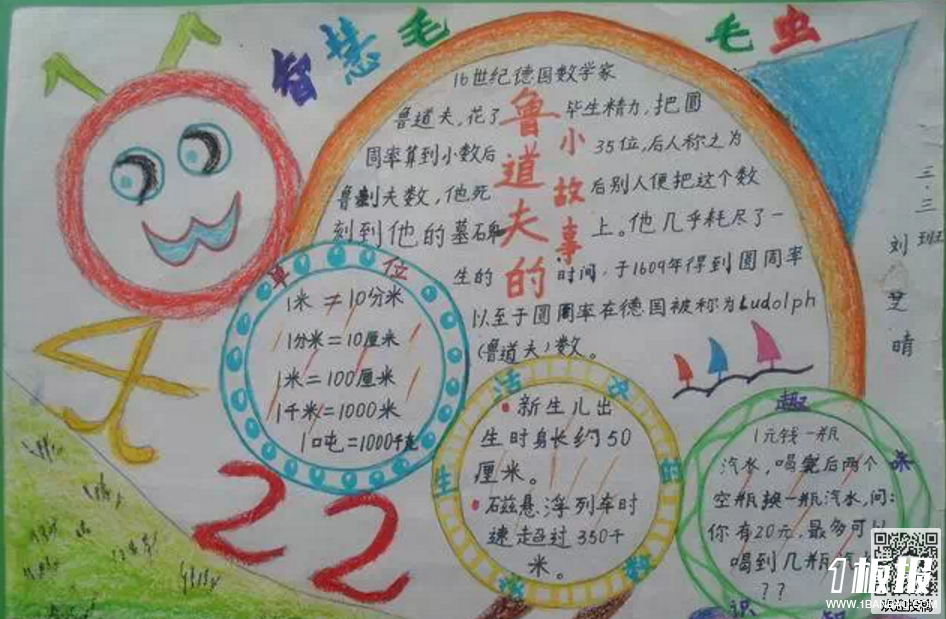 智慧毛毛虫
鲁道夫的
小故事
16世纪德国数学家
鲁道夫,花了毕生精力,把圆
周率算到小数后35位,后人称之为
鲁夫数,他死后别人便把这个数
刻到他的墓碑上。他几乎耗尽了一
生的时间,于1609年得到圆周率
以至于圆周率在德国被称为Ludolph
(鲁道夫)数。
三.三班
刘
晴
单位
1米≠10分米
1分米=10厘米
1米=100厘米
1千米=1000米
1吨=1000千克
生活中的数
•新生儿出
生时身长约50
厘米。
•磁悬浮列车时
速超过350千
米。
趣
1元钱一瓶
汽水,喝完后两个
空瓶换一瓶汽水,问:
你有20元,最多可以
喝到几瓶汽
??
识
22
1板报
WWW.1BANBAO.COM
欢迎投稿